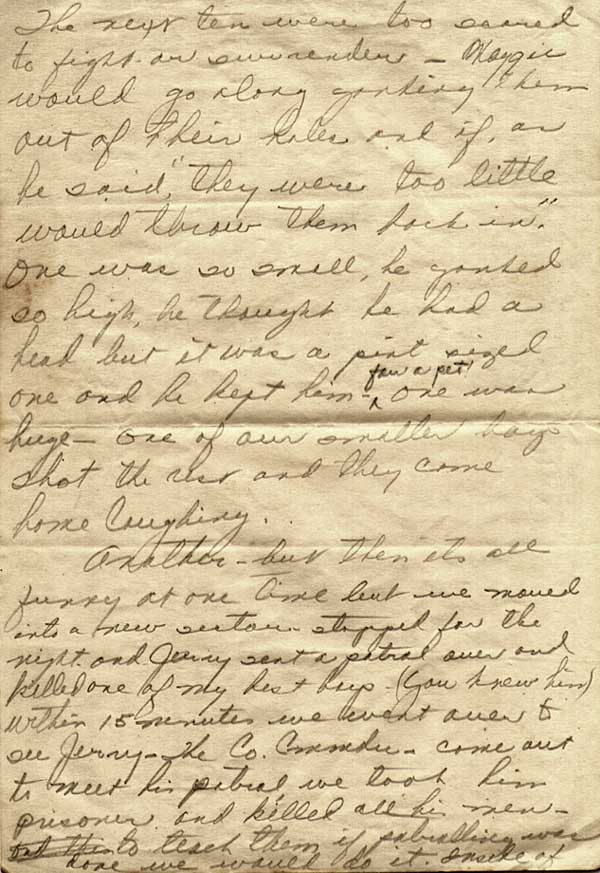 The next ten were too scared
to fight or surrender – Waggie
would go along yanking them
out of their holes and if, as
he said, "they were too little
would throw them back in".
One was so small, he yanked
so high, he thought he had a
head but it was a pint sized
one and he kept him – for a pet. One was
huge – one of our smaller boys
shot the rest and they come
home laughing.
Another – but then its all
funny at one time but we moved
into a new sector – stopped for the
night. and Jerry sent a patrol over and
killed one of my best boys – (you knew him)
within 15 minutes we went over to
see Jerry – the Co. Commdr – come out
to meet his patrol, we took him
prisoner and killed all his men –
and this to teach them if patrolling was
done we would do it. Inside of